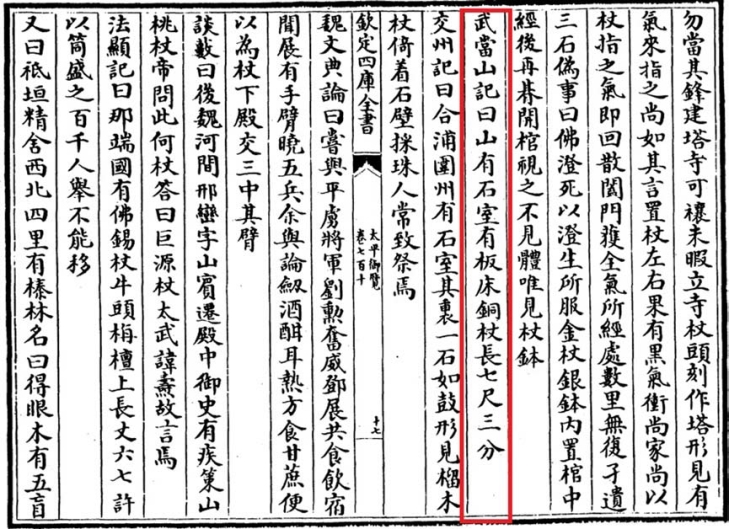 勿當其鋒建塔寺可禳未暇立寺杖頭刻作塔形見有
氣來指之尚如其言置杖左右果有黑氣衝尚家尚以
杖指之氣即回散闔門獲全氣所經處數里無復孑遺
三石偽事曰佛澄死以澄生所服金杖銀鉢内置棺中
經後再朞開棺視之不見體唯見杖鉢
武當山記曰山有石室有板床銅杖長七尺三分
交州記曰合浦圍州有石室其裏一石如鼓形見榴木
杖倚着石壁採珠人常致祭焉
欽定四庫全書
太平御覽
卷七百十
十七
魏文典論曰嘗與平虜將軍劉勲奮威鄧展共食飲宿
聞展有手臂曉五兵余與論劔酒酣耳熱方食甘蔗便
以為杖下殿交三中其臂
談藪曰後魏河間邢巒字山賓遷殿中御史有疾策山
桃杖帝問此何杖答曰巨源杖太武諱燾故言焉
法顯記曰那端國有佛錫杖牛頭栴檀上長丈六七許
以筒盛之百千人舉不能移
又曰祇垣精舍西北四里有榛林名曰得眼木有五盲